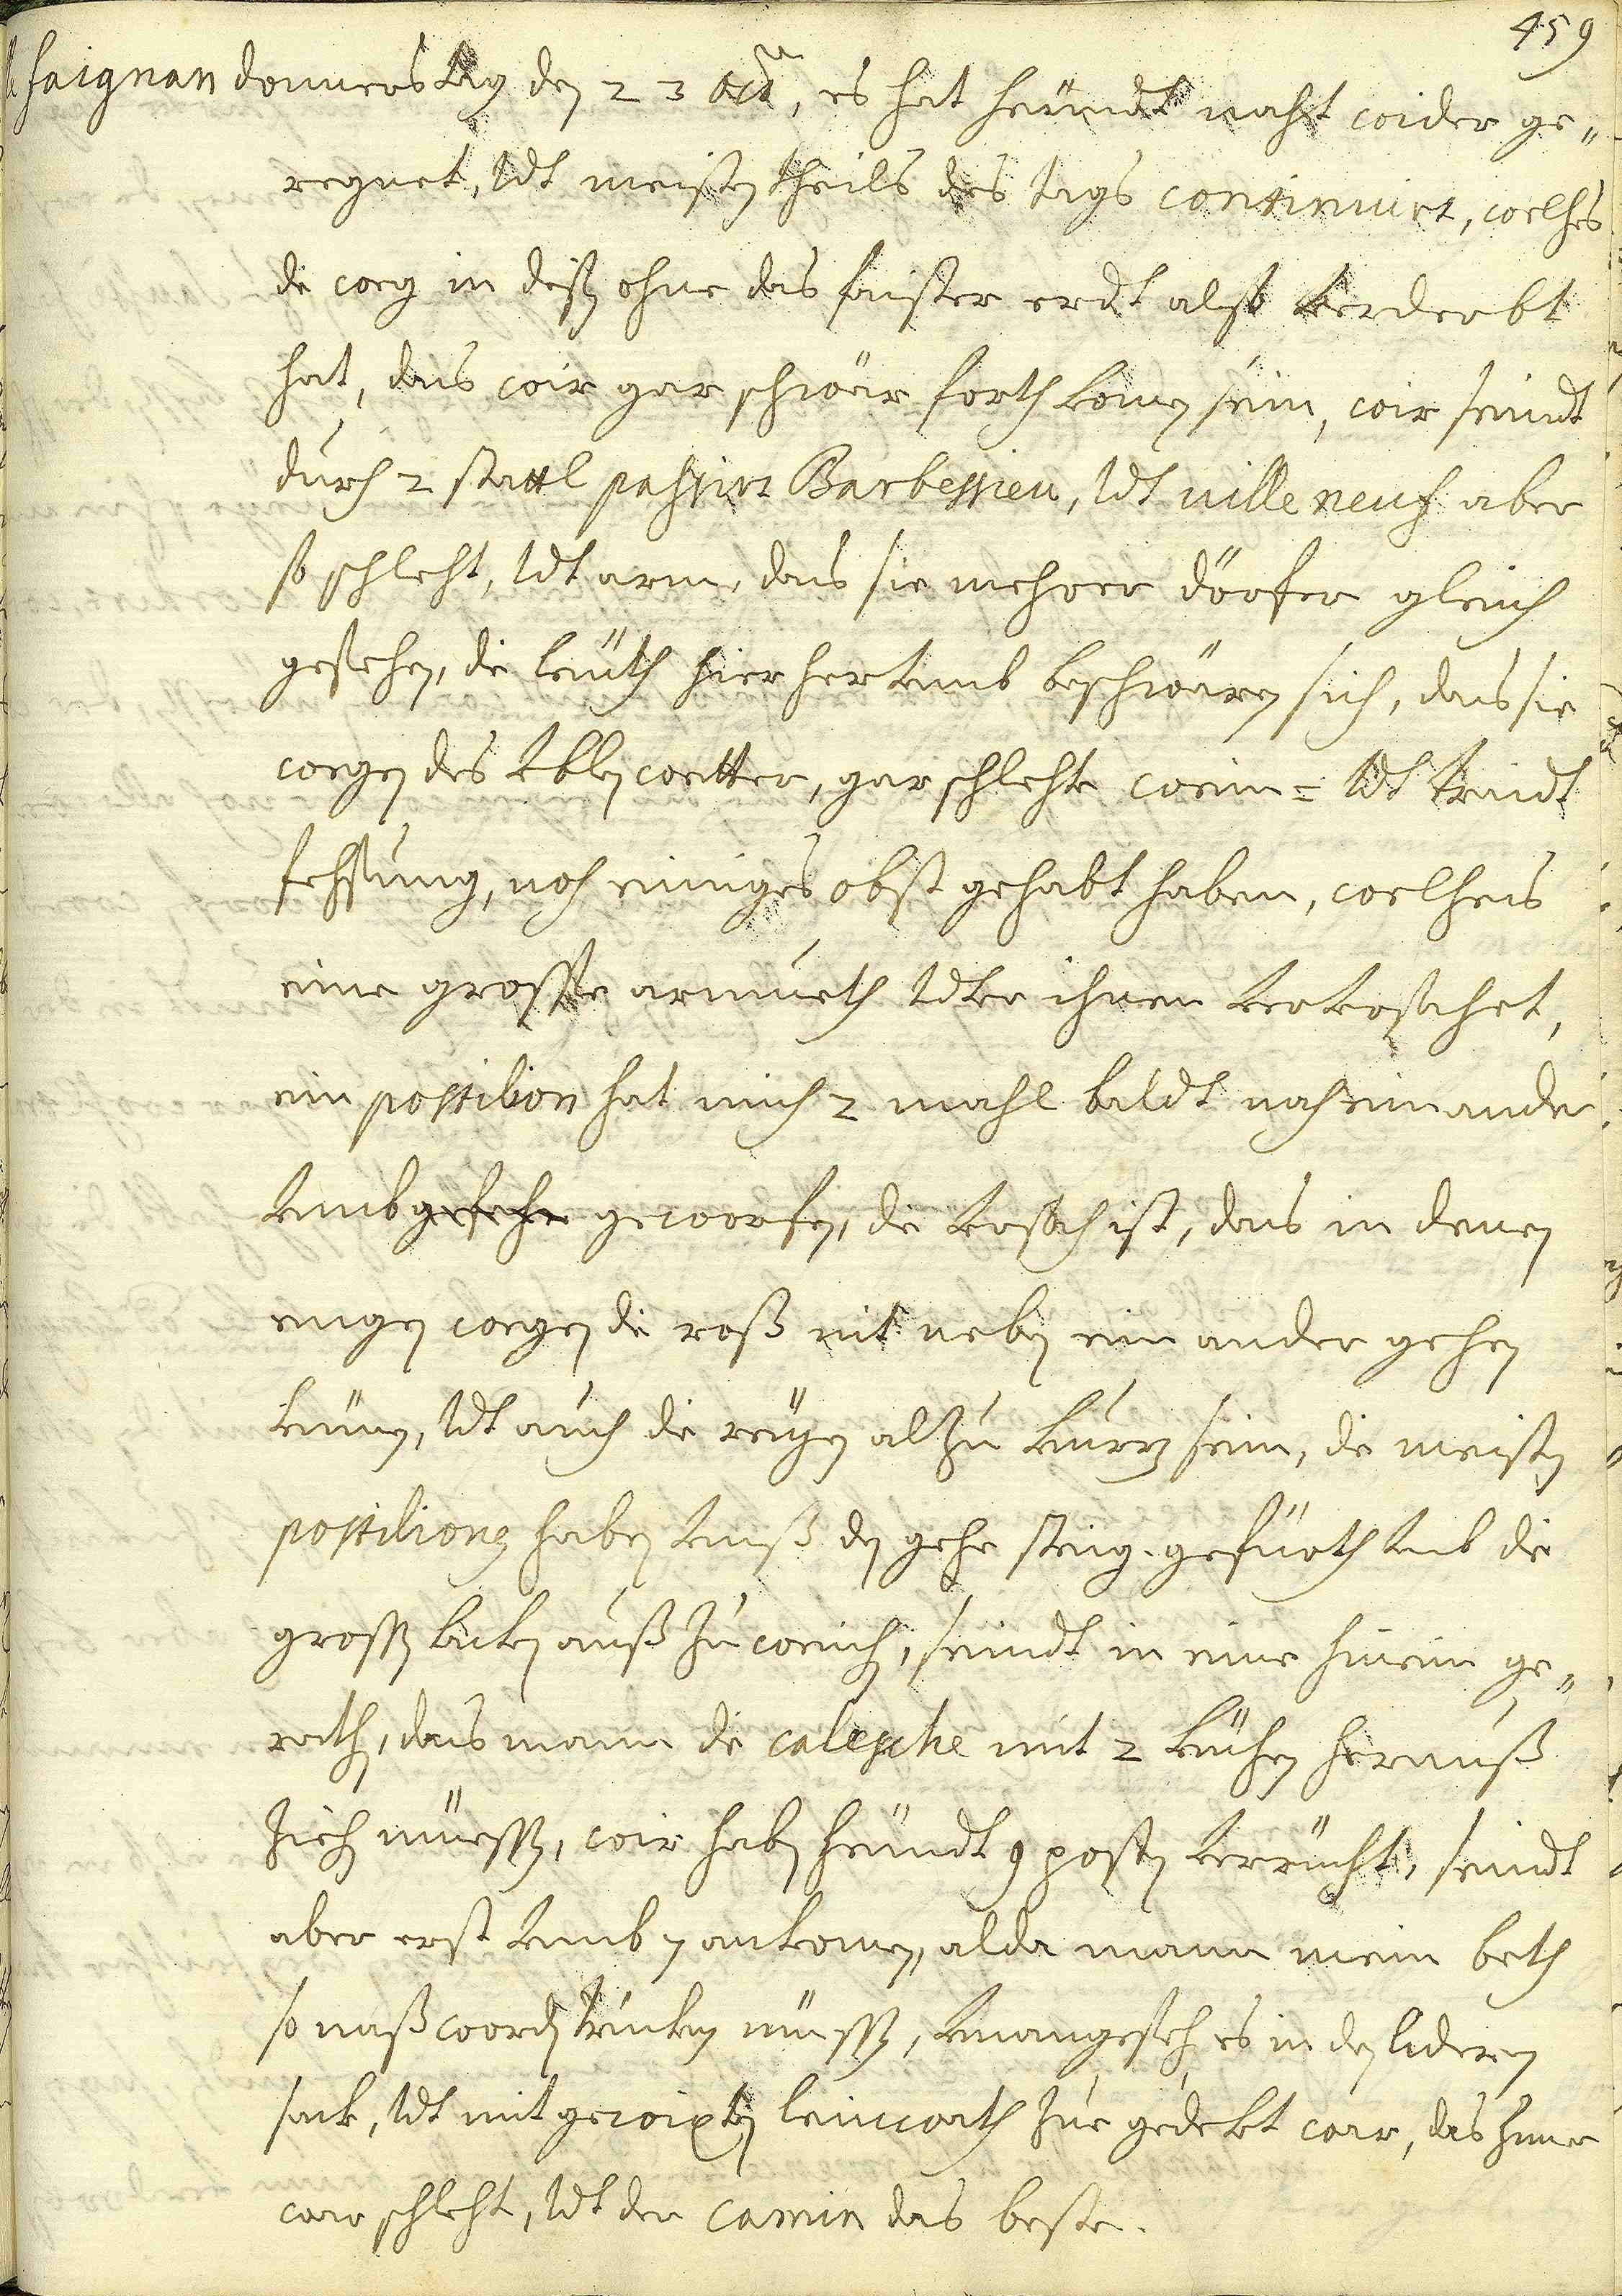 459
Chaignan donnerstag den 23 8ctr, es hat heündt nacht wider ge„
regnet, Vdt meisten theils des tags continuirt, welches
die weg in disen ohne das faister erdt also verderbt
hat, das wir gar schwär forth komen sein, wir seindt
durch 2 stattl pahsirt Barbessieu, Vdt villeneuf aber
so schlecht, Vdt arm, das sie mehrer dörfer gleich
gesehen, die leüth hier herkumb beschwären sich, das sie
wegen des vblen wetter, gar schlechte wein= Vdt traidt
fechsung, noch einiges obst gehabt haben, welches
eine grosse armueth Vdter ihnen verursachet,
ein postilion hat mich 2 mahl baldt nach einander
vmbgefehr geworfen, die vrsach ist, das in denen
engen wegen die roß nit neben ein ander gehen
künen, Vdt auch die rigen alzu kurz sein, die meisten
postilionen haben vnß den gehe steig gefürth vmb die
grossen laken auß zu weichen, seindt in eine hinein ge„
rathen, das mann die calesche mit 2 kühen herauß
ziehen müessen, wir haben heündt 9 posten verricht, seindt
aber erst vmb 7 ankomen, alda mann mein beth
so naß worden trücknen müessen, vnangesehen es in den lideren
sack, Vdt mit gewixten leinwath zue gedekt war, das zimer
war schlecht, Vdt der camin das beste.